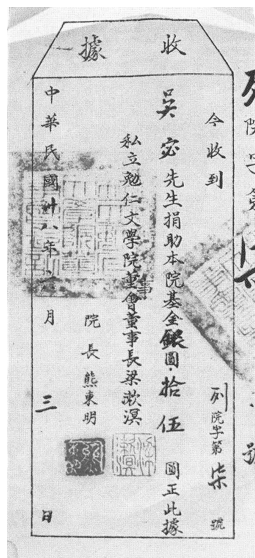 收據
列院字第柒號
今收到
吳宓先生捐助本院基金銀圓拾伍圓正此據
私立勉仁文學院董事會董事長梁漱溟
院長熊東明
中華民國卅八年 月三日
列院字第
號